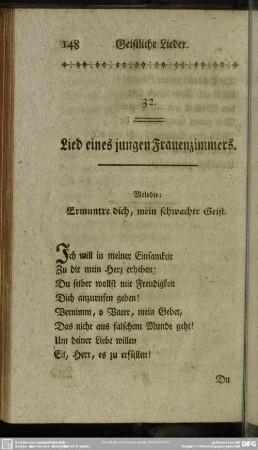 148 Geistliche Lieder.
32.
Lied eines jungen Frauenzimmers.
Melodie:
Ermuntre dich, mein schwacher Geist.
Ich will in meiner Einsamkeit
Zu dir mein Herz erheben;
Du selber wollst mir Freudigkeit
Dich anzurufen geben!
Vernimm, o Vater, mein Gebet,
Das nicht aus falschem Munde geht!
Um deiner Liebe willen
Eil, Herr, es zu erfüllen!
Du
DFG